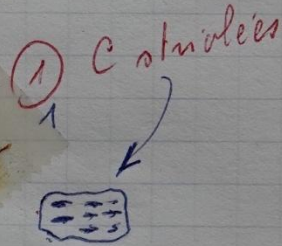 ① C striolées
1